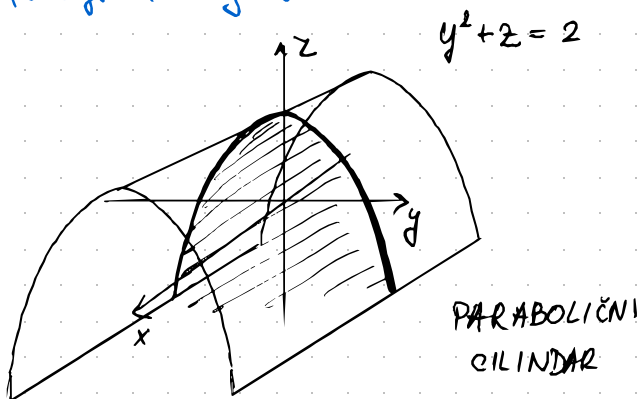 y² + z = 2
z
y
x
PARABOLIČNI
CILINDAR